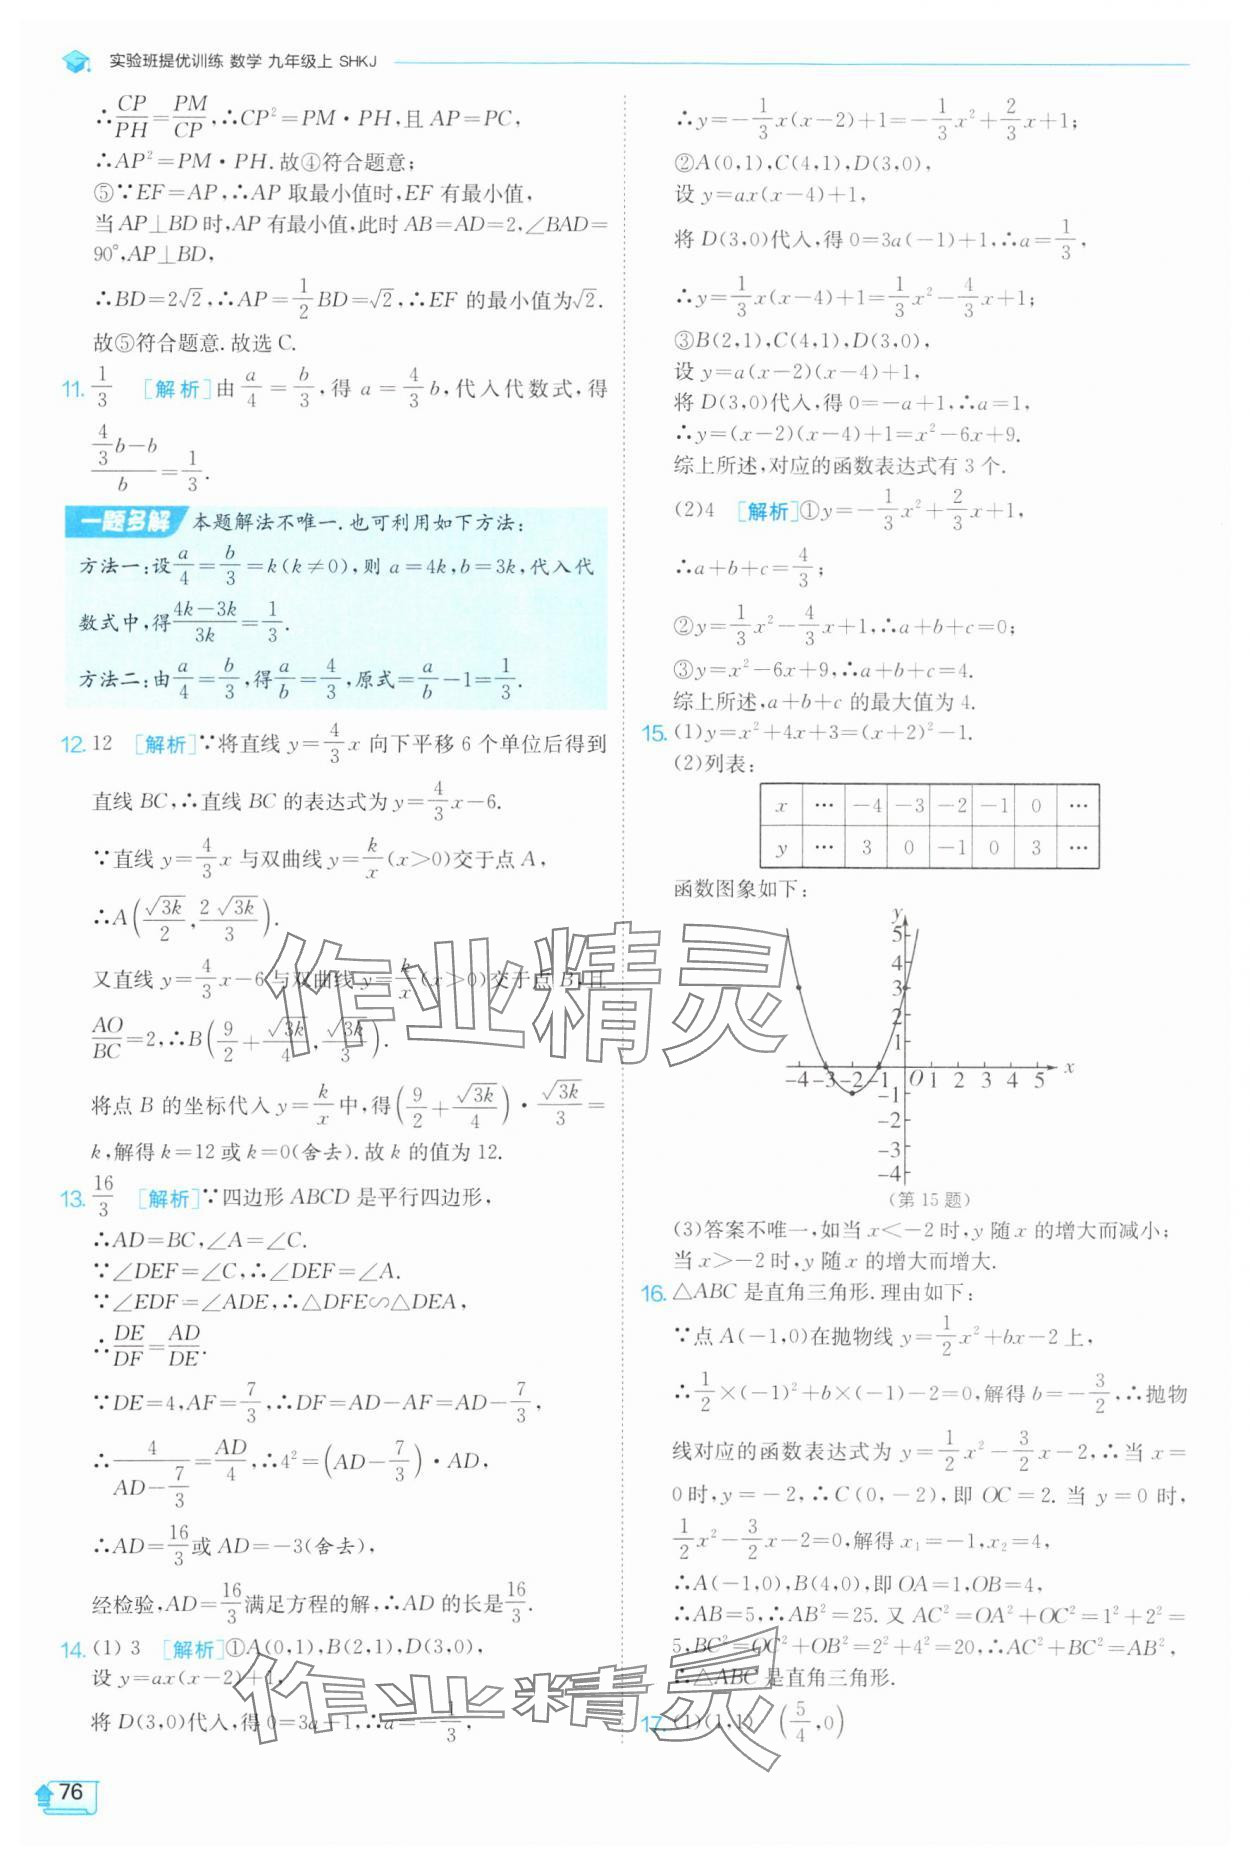 实验班提优训练 数学 九年级上 SHKJ
∴CP/PH=PM/CP,∴CP²=PM·PH,且 AP=PC,
∴AP²=PM·PH.故④符合题意;
⑤∵EF=AP,∴AP 取最小值时,EF 有最小值,
当 AP⊥BD 时,AP 有最小值,此时 AB=AD=2,∠BAD=
90°,AP⊥BD,
∴BD=2√2,∴AP=1/2 BD=√2,∴EF 的最小值为√2.
故⑤符合题意.故选 C.
11. 1/3 [解析]由 a/4=b/3,得 a=4/3 b,代入代数式,得
(4/3 b-b)/b=1/3.
一题多解 本题解法不唯一.也可利用如下方法:
方法一:设 a/4=b/3=k(k≠0),则 a=4k,b=3k,代入代
数式中,得(4k-3k)/3k=1/3.
方法二:由 a/4=b/3,得 a/b=4/3,原式=a/b-1=1/3.
12. 12 [解析]∵将直线 y=4/3 x 向下平移 6 个单位后得到
直线 BC,∴直线 BC 的表达式为 y=4/3 x-6.
∵直线 y=4/3 x 与双曲线 y=k/x(x>0)交于点 A,
∴A(√3k/2,2√3k/3).
又直线 y=4/3 x-6 与双曲线 y=k/x(x>0)交于点 B,且
AO/BC=2,∴B(9/2+√3k/4,√3k/3).
将点 B 的坐标代入 y=k/x 中,得(9/2+√3k/4)·√3k/3=
k,解得 k=12 或 k=0(舍去).故 k 的值为 12.
13. 16/3 [解析]∵四边形 ABCD 是平行四边形,
∴AD=BC,∠A=∠C.
∵∠DEF=∠C,∴∠DEF=∠A.
∵∠EDF=∠ADE,∴△DFE∽△DEA,
∴DE/DF=AD/DE.
∵DE=4,AF=7/3,∴DF=AD-AF=AD-7/3,
∴4/(AD-7/3)=AD/4,∴4²=(AD-7/3)·AD,
∴AD=16/3 或 AD=-3(舍去),
经检验,AD=16/3 满足方程的解,∴AD 的长是 16/3.
14. (1) 3 [解析]①A(0,1),B(2,1),D(3,0),
设 y=ax(x-2)+1,
将 D(3,0)代入,得 0=3a+1,∴a=-1/3,
∴y=-1/3 x(x-2)+1=-1/3 x²+2/3 x+1;
②A(0,1),C(4,1),D(3,0),
设 y=ax(x-4)+1,
将 D(3,0)代入,得 0=3a(-1)+1,∴a=1/3,
∴y=1/3 x(x-4)+1=1/3 x²-4/3 x+1;
③B(2,1),C(4,1),D(3,0),
设 y=a(x-2)(x-4)+1,
将 D(3,0)代入,得 0=-a+1,∴a=1,
∴y=(x-2)(x-4)+1=x²-6x+9.
综上所述,对应的函数表达式有 3 个.
(2)4 [解析]①y=-1/3 x²+2/3 x+1,
∴a+b+c=4/3;
②y=1/3 x²-4/3 x+1,∴a+b+c=0;
③y=x²-6x+9,∴a+b+c=4.
综上所述,a+b+c 的最大值为 4.
15. (1)y=x²+4x+3=(x+2)²-1.
(2)列表:
x … -4 -3 -2 -1 0 …
y … 3 0 -1 0 3 …
函数图象如下:
y
5
4
3
2
1
-4 -3 -2 -1 O 1 2 3 4 5 x
-1
-2
-3
-4
(第 15 题)
(3)答案不唯一,如当 x<-2 时,y 随 x 的增大而减小;
当 x>-2 时,y 随 x 的增大而增大.
16. △ABC 是直角三角形.理由如下:
∵点 A(-1,0)在抛物线 y=1/2 x²+bx-2 上,
∴1/2×(-1)²+b×(-1)-2=0,解得 b=-3/2,∴抛物
线对应的函数表达式为 y=1/2 x²-3/2 x-2,∴当 x=
0 时,y=-2,∴C(0,-2),即 OC=2.当 y=0 时,
1/2 x²-3/2 x-2=0,解得 x₁=-1,x₂=4,
∴A(-1,0),B(4,0),即 OA=1,OB=4,
∴AB=5,∴AB²=25.又 AC²=OA²+OC²=1²+2²=
5,BC²=OC²+OB²=2²+4²=20,∴AC²+BC²=AB²,
∴△ABC 是直角三角形.
17. (1)(1,1) (5/4,0)
作业精灵
作业精灵
76